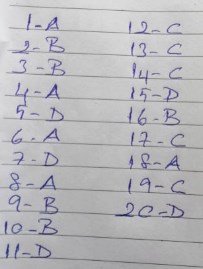 1-A
2-B
3-B
4-A
5-D
6-A
7-D
8-A
9-B
10-B
11-D
12-C
13-C
14-C
15-D
16-B
17-C
18-A
19-C
20-D